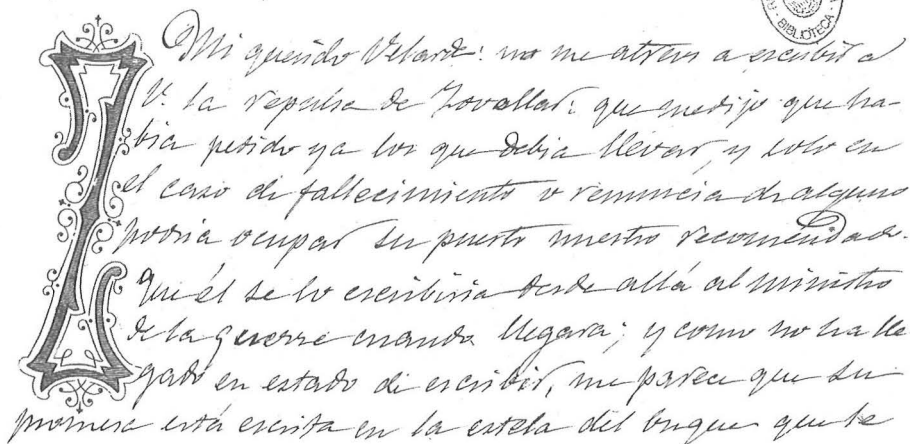 BIBLIOTECA
Mi querido Velarde: no me atreví a escribir a
V. la repulsa de Zovallar: que me dijo que ha-
bia pedido ya los que debia llevar, y solo en
el caso de fallecimiento o renuncia de alguno
podria ocupar su puesto nuestro recomendado.
Que él se lo escribiria desde allá al Ministro
de la Guerra cuando llegara; y como no ha lle
gado en estado de escribir, me parece que su
promesa está escrita en la estela del buque que le